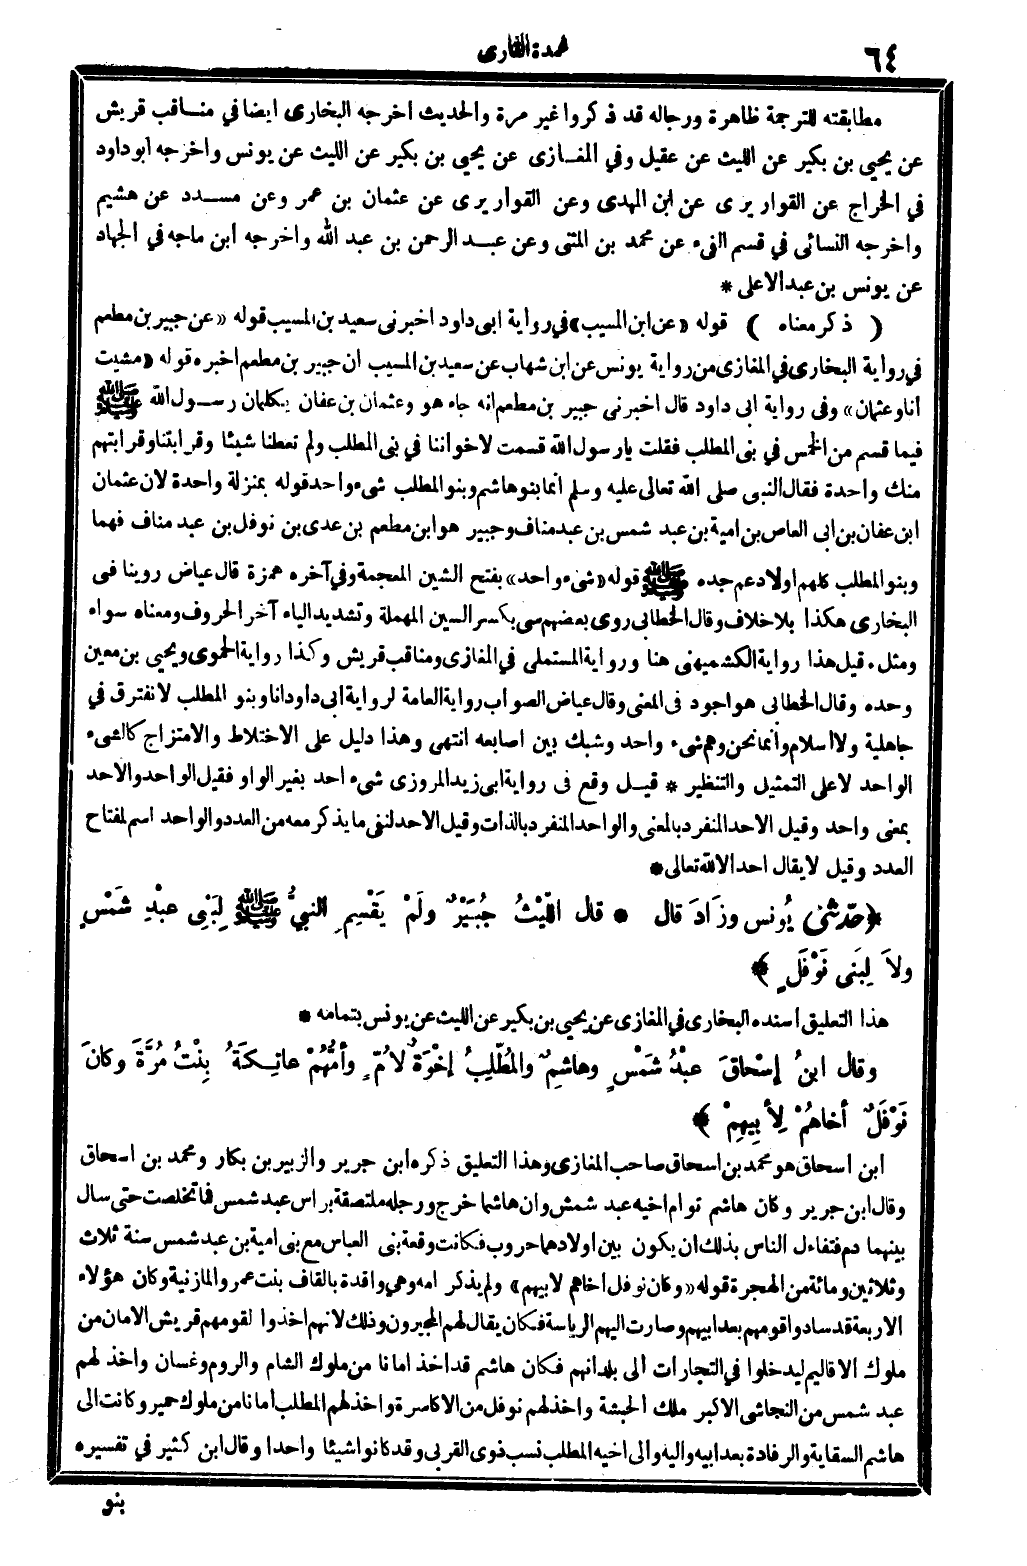 ٦٤
عمدة القارى
مطابقته للترجمة ظاهرة ورجاله قد ذكروا غير مرة والحديث اخرجه البخارى ايضا في مناقب قريش
عن يحيى بن بكير عن الليث عن عقيل وفي المغازى عن يحيى بن بكير عن الليث عن يونس واخرجه ابو داود
في الخراج عن القواريرى عن ابن المهدى وعن القواريرى عن عثمان بن عمر وعن مسدد عن هشيم
واخرجه النسائى في قسم الفىء عن محمد بن المثنى وعن عبد الرحمن بن عبد الله واخرجه ابن ماجه في الجهاد
عن يونس بن عبد الاعلى *
( ذكر معناه ) قوله «عن ابن المسيب» في رواية ابى داود اخبرنى سعيد بن المسيب قوله «عن جبير بن مطعم
في رواية البخارى في المغازى من رواية يونس عن ابن شهاب عن سعيد بن المسيب ان جبير بن مطعم اخبره قوله «مشيت
انا وعثمان» وفى رواية ابى داود قال اخبرنى جبير بن مطعم انه جاء هو وعثمان بن عفان يكلمان رسول الله ﷺ
فيما قسم من الخمس في بنى المطلب فقلت يارسول الله قسمت لاخواننا في بنى المطلب ولم تعطنا شيئا وقرابتنا وقرابتهم
منك واحدة فقال النبى صلى الله تعالى عليه وسلم انما بنو هاشم وبنو المطلب شىء واحد قوله بمنزلة واحدة لان عثمان
ابن عفان بن ابى العاص بن امية بن عبد شمس بن عبد مناف وجبير هو ابن مطعم بن عدى بن نوفل بن عبد مناف فهما
وبنو المطلب كلهم اولاد عم جده ﷺ قوله «شىء واحد» بفتح الشين المعجمة وفي آخره همزة قال عياض روينا فى
البخارى هكذا بلا خلاف وقال الخطابى روى بعضهم سى بكسر السين المهملة وتشديد الياء آخر الحروف ومعناه سواء
ومثل. قيل هذا رواية الكشميهنى هنا ورواية المستملى في المغازى ومناقب قريش وكذا رواية الحموى ويحيى بن معين
وحده وقال الخطابى هو اجود فى المعنى وقال عياض الصواب رواية العامة لرواية ابى داود انا وبنو المطلب لا نفترق في
جاهلية ولا اسلام وانما نحن وهم شىء واحد وشبك بين اصابعه انتهى وهذا دليل على الاختلاط والامتزاج كالشىء
الواحد لا على التمثيل والتنظير * قيل وقع فى رواية ابى زيد المروزى شىء احد بغير الواو فقيل الواحد والاحد
بمعنى واحد وقيل الاحد المنفرد بالمعنى والواحد المنفرد بالذات وقيل الاحد لنفى ما يذكر معه من العدد والواحد اسم لمفتاح
العدد وقيل لا يقال احد الا لله تعالى *
﴿حدّثنى يُونس وزَادَ قال * قال اللّيْثُ جُبَيْرٌ ولَمْ يَقْسِمِ النبيُّ ﷺ لِبَنِى عبْدِ شَمْسٍ
ولاَ لِبَنى نَوْفَلٍ ﴾
هذا التعليق اسنده البخارى في المغازى عن يحيى بن بكير عن الليث عن يونس بتمامه *
وقال ابنُ إسْحاقَ عبْدُ شَمْسٍ وهاشِمٌ والمُطّلِبُ إخْوَةٌ لأُمّ وأُمُّهُمْ عاتِكَةُ بِنْتُ مُرَّةَ وكانَ
نَوْفَلٌ أخاهُمْ لِأَبِيهِمْ ﴾
ابن اسحاق هو محمد بن اسحاق صاحب المغازى وهذا التعليق ذكره ابن جرير والزبير بن بكار ومحمد بن اسحاق
وقال ابن جرير وكان هاشم توأم اخيه عبد شمش وان هاشما خرج ورجله ملتصقة برأس عبد شمس فما تخلصت حتى سال
بينهما دم فتفاءل الناس بذلك ان يكون بين اولادهما حروب فكانت وقعة بنى العباس مع بنى امية بن عبد شمس سنة ثلاث
وثلاثين ومائة من الهجرة قوله «وكان نوفل اخاهم لابيهم» ولم يذكر امه وهى واقدة بالقاف بنت عمرو المازنية وكان هؤلاء
الاربعة قد سادوا قومهم بعد ابيهم وصارت اليهم الرياسة فكان يقال لهم المجيرون وذلك لانهم اخذوا لقومهم قريش الامان من
ملوك الاقاليم ليدخلوا في التجارات الى بلدانهم فكان هاشم قد اخذ امانا من ملوك الشام والروم وغسان واخذ لهم
عبد شمس من النجاشى الاكبر ملك الحبشة واخذ لهم نوفل من الاكاسرة واخذ لهم المطلب أمانا من ملوك حمير وكانت الى
هاشم السقاية والرفادة بعد ابيه واليه والى اخيه المطلب نسب ذوى القربى وقد كانوا شيئا واحدا وقال ابن كثير في تفسيره
بنو